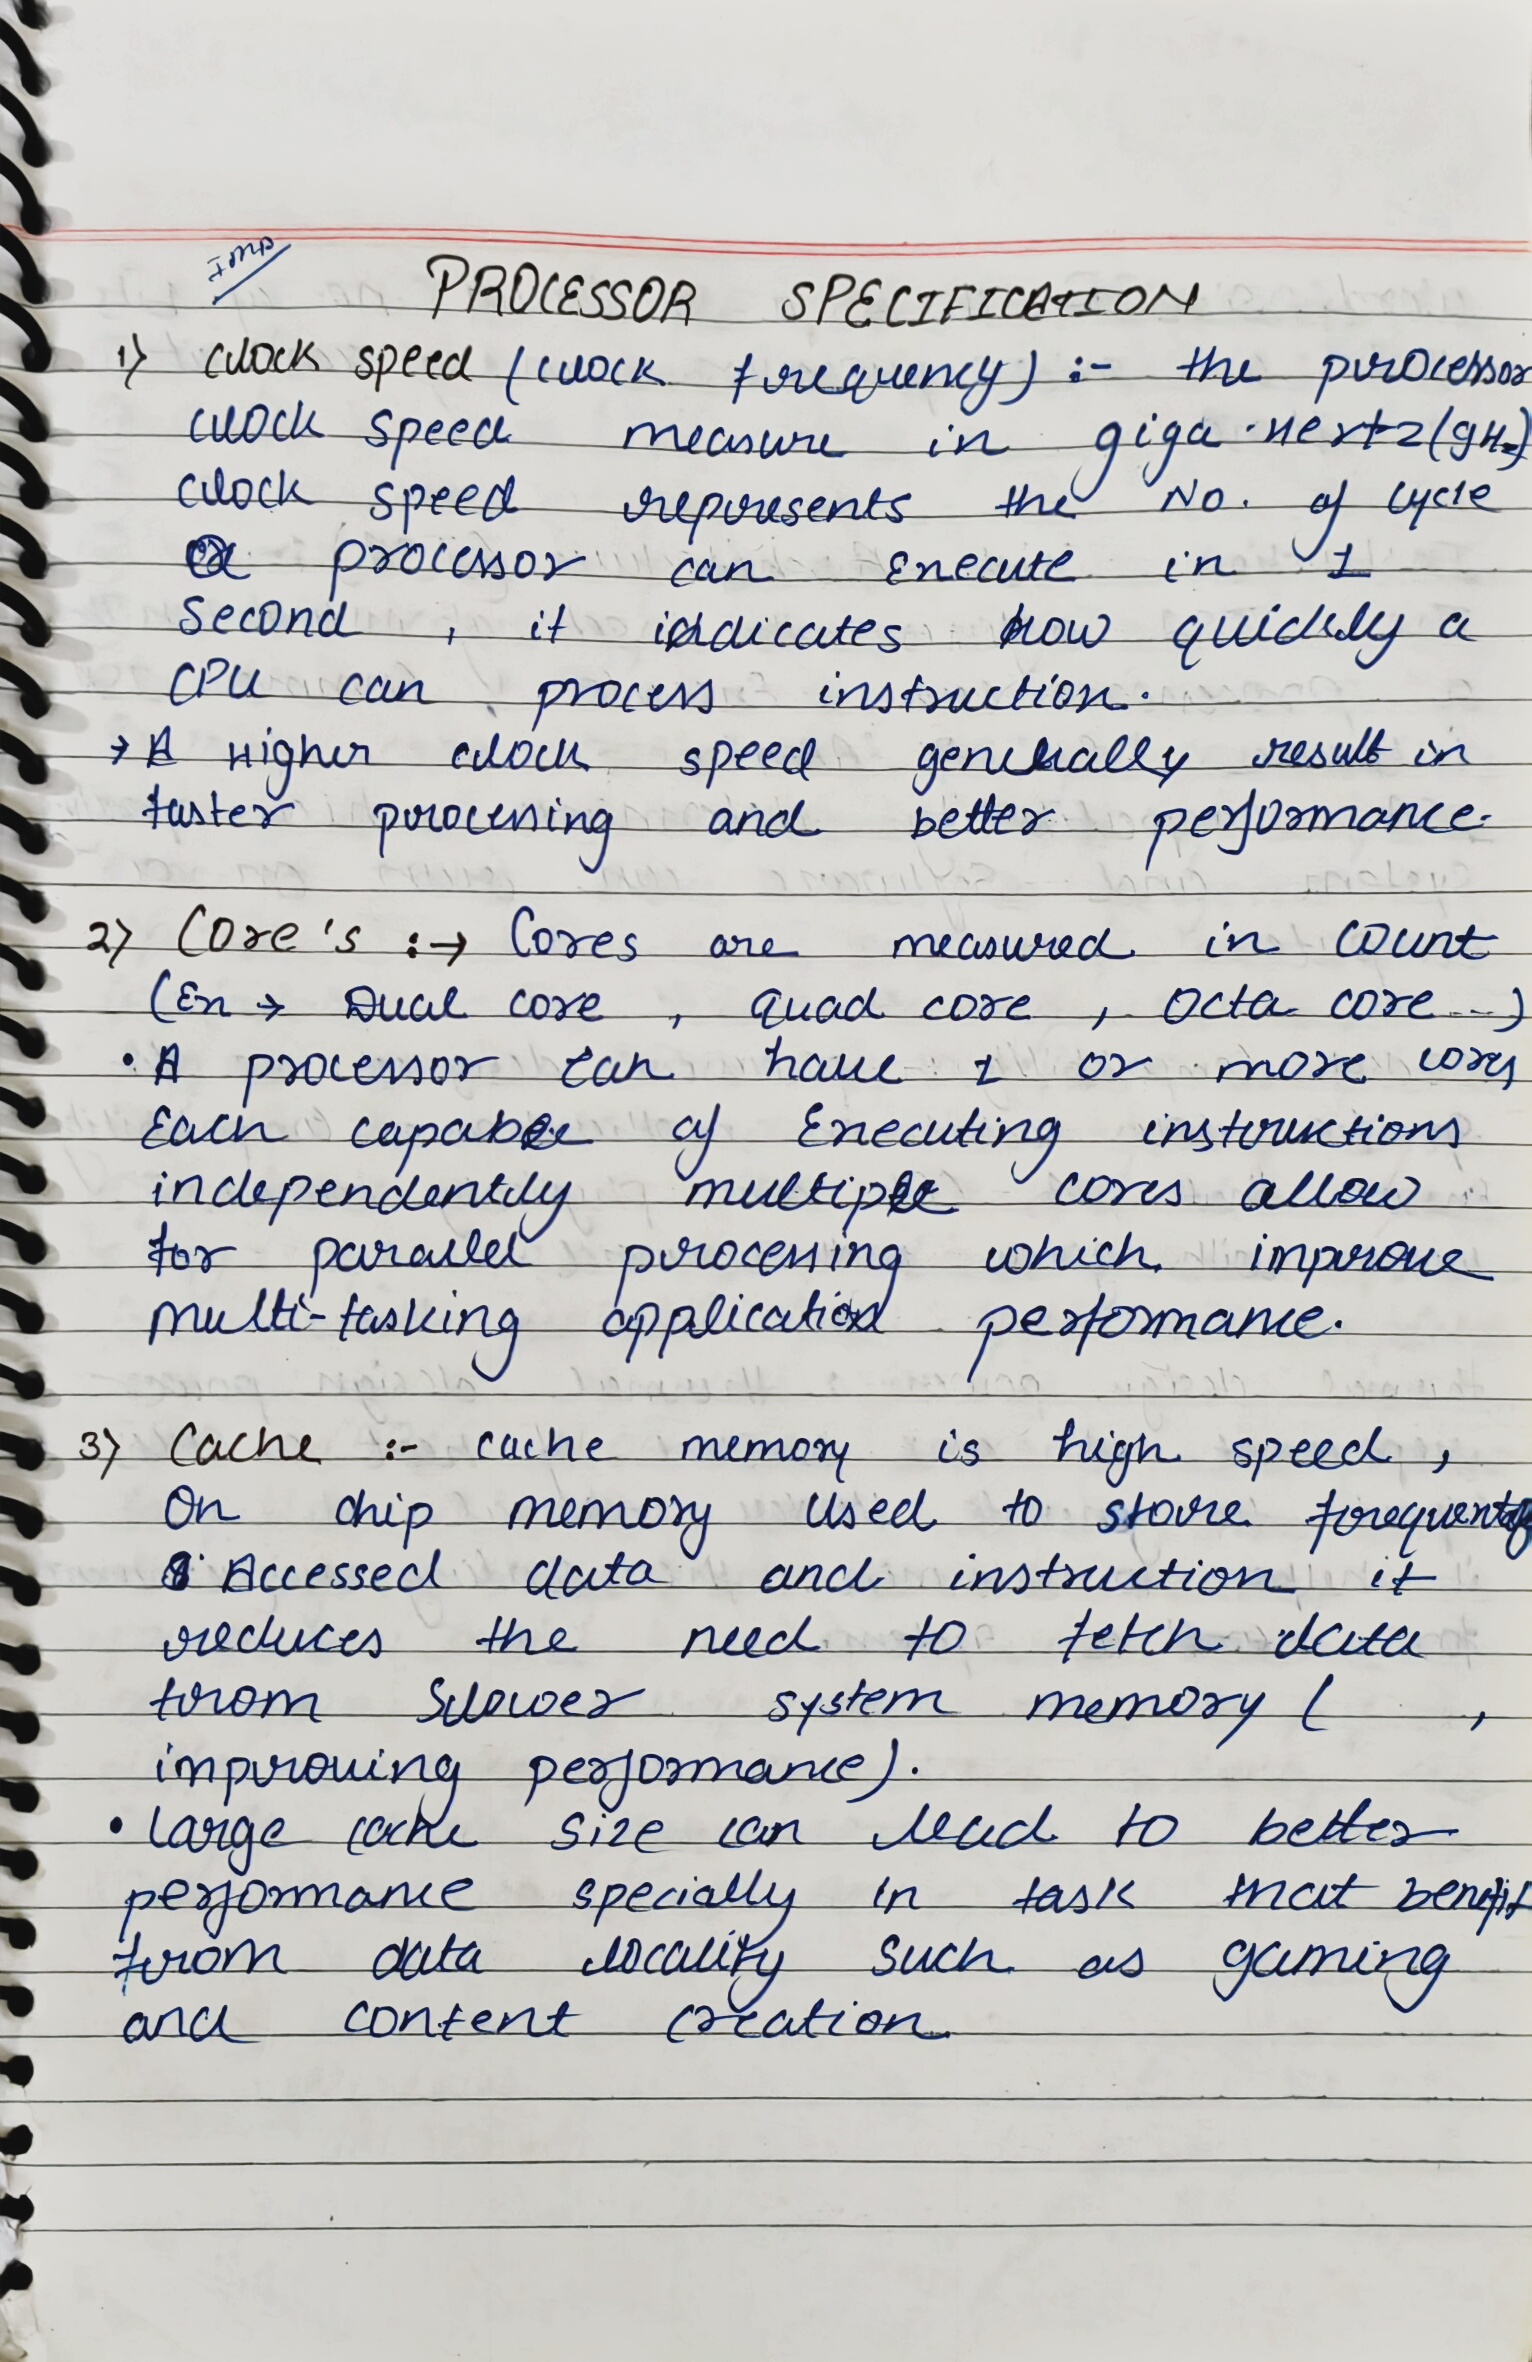 Imp
PROCESSOR SPECIFICATION
1) clock speed (clock frequency) :- the processor
clock speed measure in giga-hertz (gHz)
clock speed represents the No. of cycle
a processor can Execute in 1
Second , it indicates how quickly a
CPU can process instruction.
→ A Higher clock speed generally result in
faster processing and better performance.
2) Core's :→ Cores are measured in count
(Ex → Dual core , quad core , octa core ...)
• A processor can have 1 or more cores
Each capable of Executing instructions
independently multiple cores allow
for parallel processing which improve
multi-tasking application performance.
3) Cache :- cache memory is high speed ,
On chip memory used to store frequently
Accessed data and instruction it
reduces the need to fetch data
from slower system memory ( ,
improving performance).
• large cache size can lead to better
performance specially in task that benefit
from data locality such as gaming
and content creation.